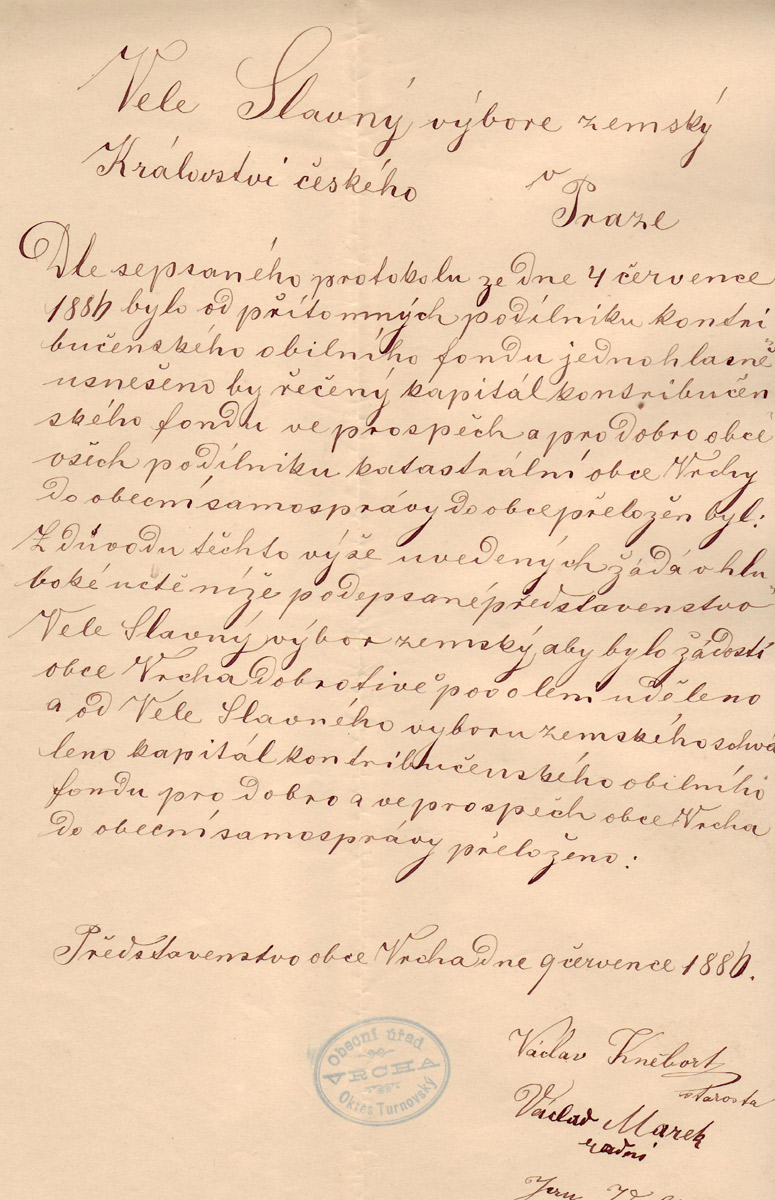 Vele Slavný výbore zemský
Království českého v Praze
Dle sepsaného protokolu ze dne 4 července
1886 bylo od přítomných podílniku kontri
bučenského obilního fondu jednohlasně
usnešeno by řečený kapitál kontribučen
ského fondu ve prospěch a pro dobro obce
všech podílniku katastrální obce Vrchy
do obecní samosprávy do obce přeložen byl:
Z důvodu těchto výše uvedených žádá v hlu
boké uctě níže podepsané představenstvo
Vele Slavný výbor zemský, aby bylo žádostí
obce Vrcha dobrotivě povolení uděleno
a od Vele Slavného vyboru zemského schvá
leno kapitál kontribučenského obilního
fondu pro dobro a ve prospěch obce Vrcha
do obecní samosprávy přeloženo:
Představenstvo obce Vrcha dne 9 července 1886.
Obecní úřad
VRCHA
Okres Turnovský
Václav Knébort
starosta
Václav Marek
radní